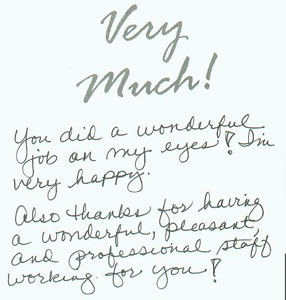 Very
Much!
You did a wonderful
job on my eyes! I'm
very happy.
Also thanks for having
a wonderful, pleasant,
and professional staff
working for you!